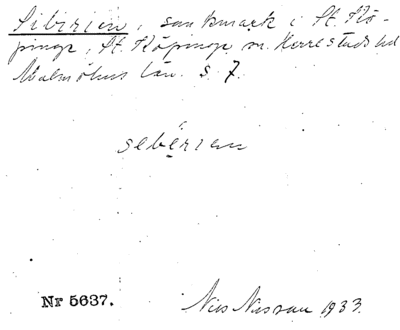 Sibirien, sankmark i St. Kö-
pinge, St. Köpinge sn. Herrestads hd
Malmöhus län. s 7.
sebérien
Nr 5637.
Nils Nilsson 1933.